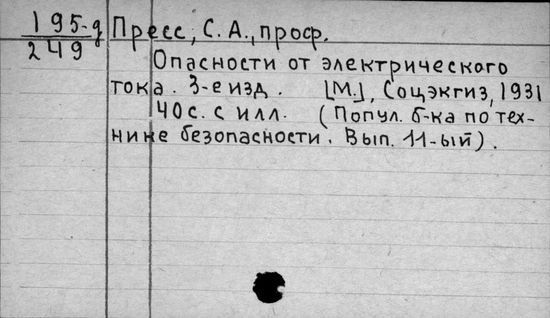 195-д
249
Пресс, С. А., проф.
Опасности от электрического
тока. 3-е изд. [М.], Соцэкгиз, 1931
40 с. с илл. (Попул. б-ка по тех-
нике безопасности. Вып. 11-ый).